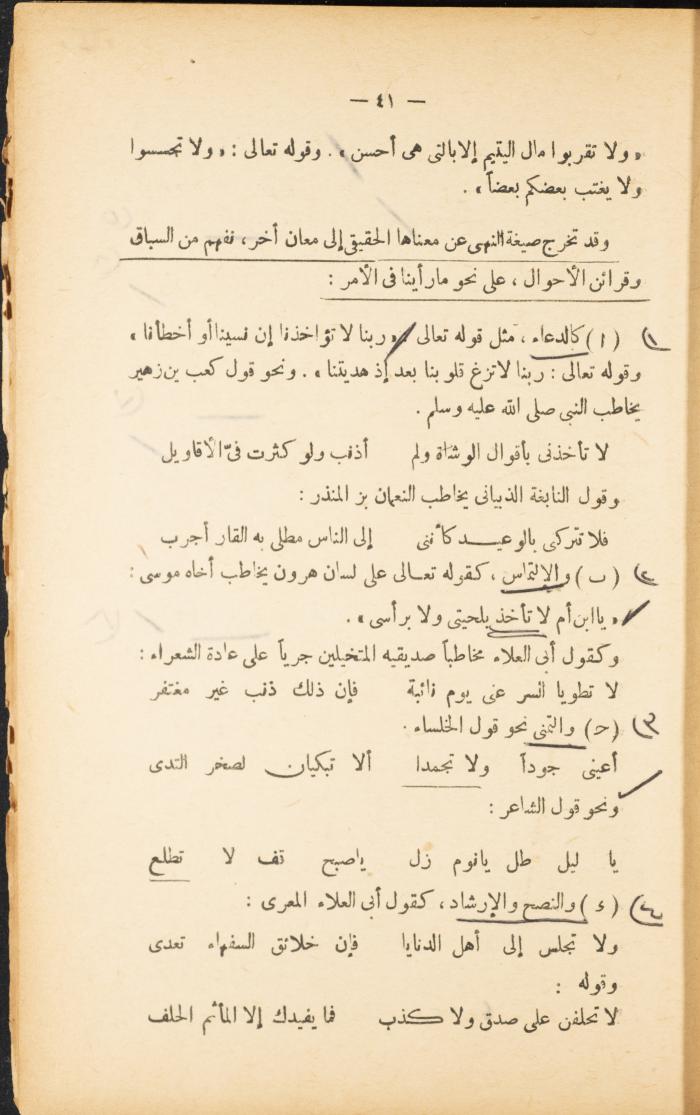 — ٤١ —
« ولا تقربوا مال اليتيم إلا بالتى هى أحسن » . وقوله تعالى : « ولا تجسسوا
ولا يغتب بعضكم بعضاً » .
وقد تخرج صيغة النهى عن معناها الحقيقى إلى معان أخر ، تفهم من السباق
وقرائن الأحوال ، على نحو ما رأينا فى الأمر :
١) (ا) كالدعاء ، مثل قوله تعالى : « ربنا لا تؤاخذنا إن نسينا أو أخطأنا »
وقوله تعالى : ربنا لا تزغ قلوبنا بعد إذ هديتنا » . ونحو قول كعب بن زهير
يخاطب النبى صلى الله عليه وسلم .
لا تأخذنى بأقوال الوشاة ولم أذنب ولو كثرت فىّ الأقاويل
وقول النابغة الذبيانى يخاطب النعمان بز المنذر :
فلا تتركى بالوعيــد كأننى إلى الناس مطلى به القار أجرب
٢) (ب) والإلتماس ، كقوله تعـالى على لسان هرون يخاطب أخاه موسى :
« يا ابن أم لا تأخذ بلحيتى ولا برأسى » .
وكقول أبى العلاء مخاطباً صديقيه المتخيلين جرياً على عادة الشعراء :
لا تطويا السر عنى يوم نائبة فإن ذلك ذنب غير مغتفر
٣) (ح) والتمنى نحو قول الخلساء .
أعينى جوداً ولا تجمدا ألا تبكيان لصخر الندى
ونحو قول الشاعر :
يا ليل طل يا نوم زل يا صبح قف لا تطلع
٤) (ء) والنصح والإرشاد ، كقول أبى العلاء المعرى :
ولا تجلس إلى أهل الدنايا فإن خلائق السفهاء تعدى
وقوله :
لا تحلفن على صدق ولا كذب فما يفيدك إلا المأثم الحلف